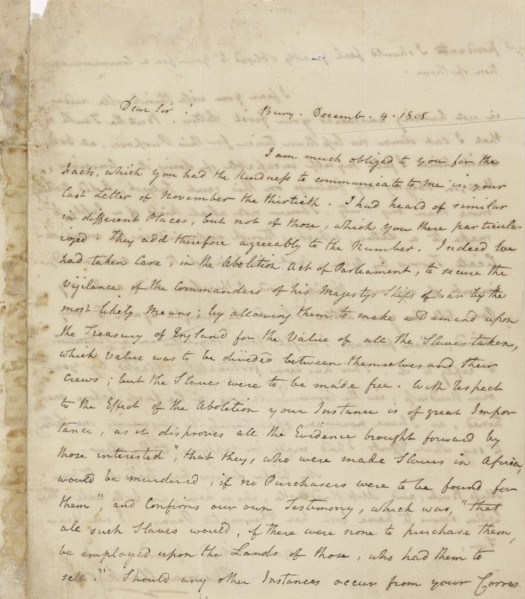 Dear Sir!
Bury. Decemb. 4. 1808
I am much obliged to you for the
Facts, which you had the Kindness to communicate to me in your
last Letter of November the thirtieth. I had heard of similar
in different Places, but not of those, which you there particular
ized. They add therefore agreeably to the Number. Indeed we
had taken Care, in the Abolition Act of Parliament, to secure the
Vigilance of the Commanders of his Majestys Ships of war by the
most likely Means; by allowing them to make a Demand upon
the Treasury of England for the Value of all the Slaves taken,
which Value was to be divided between themselves and their
Crews; but the Slaves were to be made free. With respect
to the Effect of the Abolition your Instance is of great Impor
tance, as it disproves all the Evidence brought forward by
those interested "that they, who were made Slaves in Africa,
would be murdered, if no Purchasers were to be found for
them", and confirms our own Testimony, which was, "that
all such Slaves would, if there were none to purchase them,
be employed upon the Lands of those, who had them to
sell." Should any other Instances occur from your Corres